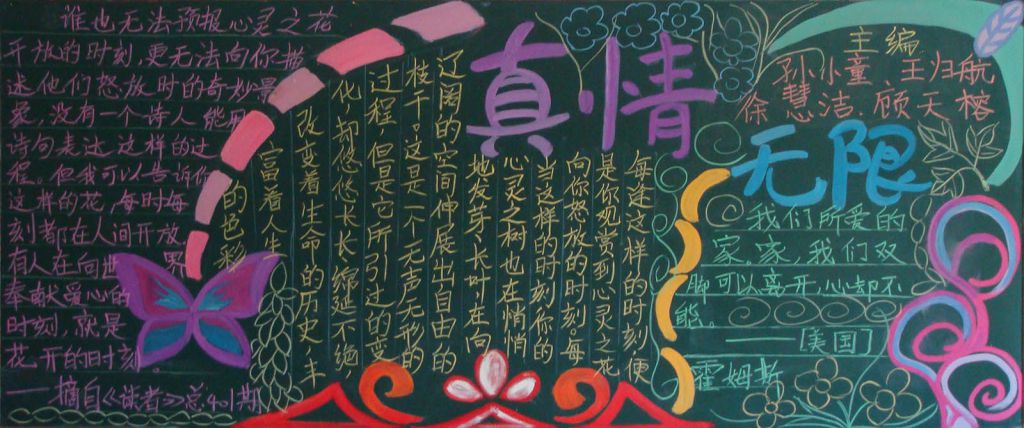 真情
无限
主编
孙小童、王归航
徐慧洁、顾天榕
谁也无法预报心灵之花
开放的时刻,更无法向你描
述他们怒放时的奇妙景
象,没有一个诗人能用
诗句表达这样的过
程。但我可以告诉你
这样的花,每时每
刻都在人间开放。
有人在向世界
奉献爱心的
时刻,就是
花开的时刻。
——摘自《读者》总401期
每逢这样的时刻便
是你观赏到心灵之花
向你怒放的时刻。每
当这样的时刻你的
心灵之树也在悄悄
地发芽、长叶,在向
辽阔的空间伸展出自由的
枝干。这是一个无声无形的
过程,但是它所引过的变
化,却悠悠长长,绵延不绝
改变着生命的历史,丰
富着人生
的色彩
我们所爱的
家,家,我们双
脚可以离开,心却不
能。
——[美国]
霍姆斯